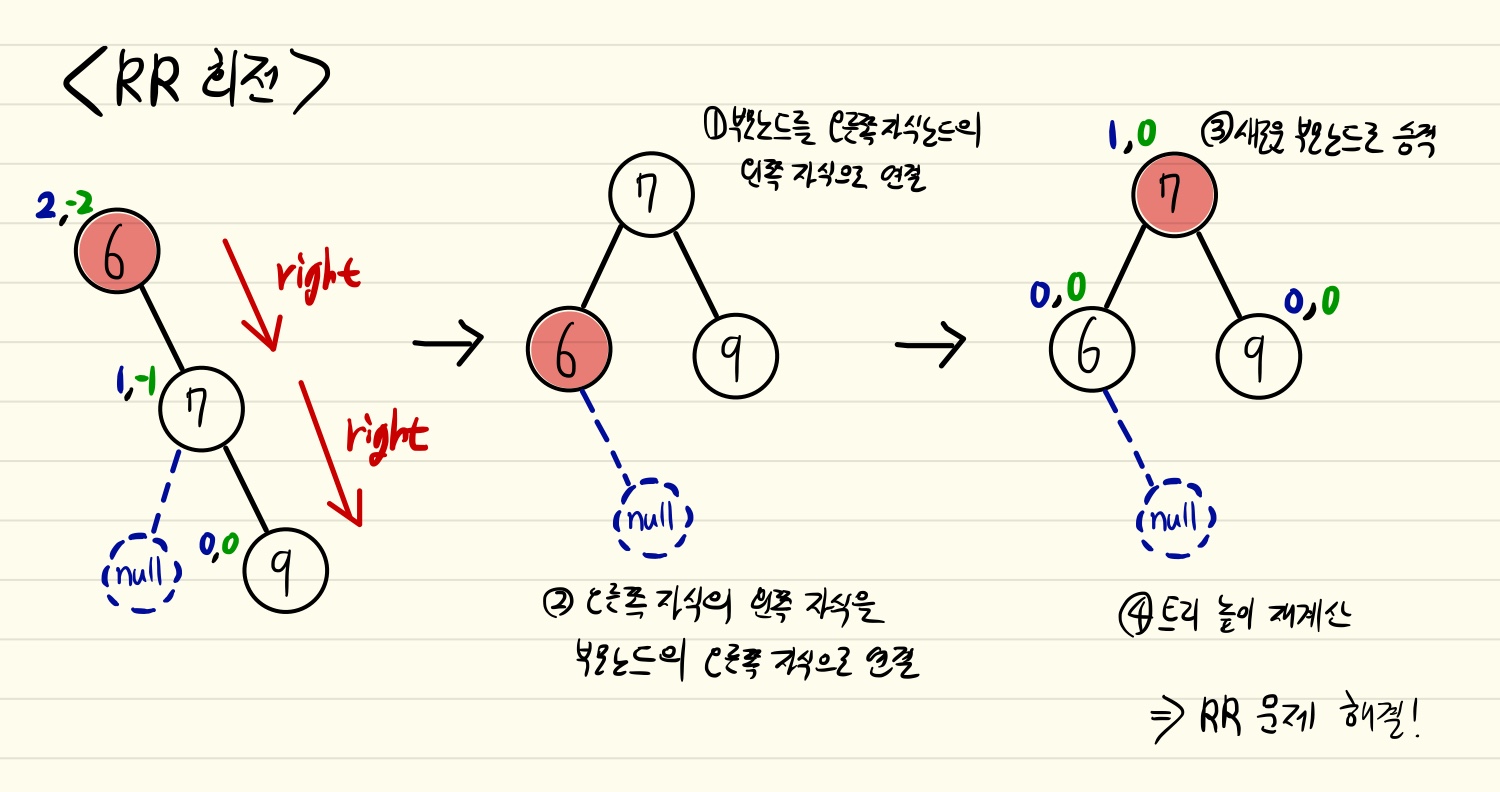 <RR 회전>
2,-2
6
right
1,-1
7
right
null
0,0
9
→
①부모노드를 오른쪽 자식노드의
왼쪽 자식으로 연결
7
6
9
null
② 오른쪽 자식의 왼쪽 자식을
부모노드의 오른쪽 자식으로 연결
→
1,0
③새로운 부모노드로 승격
7
0,0
6
0,0
9
null
④트리 높이 재계산
⇒ RR 문제 해결!